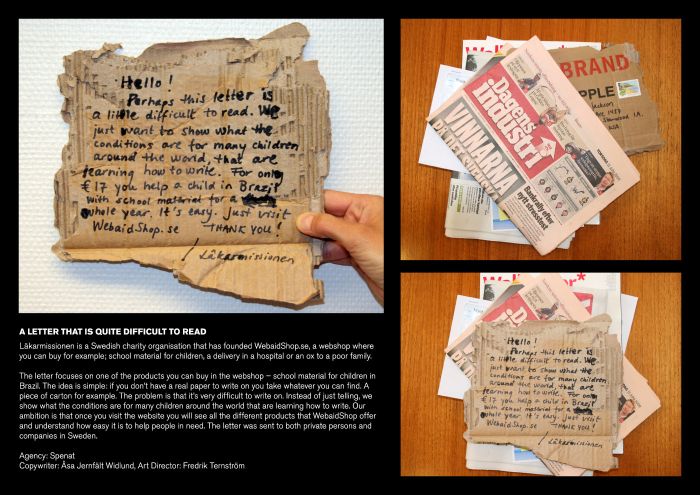 Hello!
Perhaps this letter is
a little difficult to read. We
just want to show what the
conditions are for many children
around the world, that are
learning how to write. For only
€17 you help a child in Brazil
with school material for a
whole year. It's easy. Just visit
WebaidShop.se THANK YOU!
/ Läkarmissionen
BRAND
PPLE
Jackson
1437
Stanwood IA.
USA
Dagens
industri
VINNARNA
Bankrally efter
nytt stresstest
Hello!
Perhaps this letter is
a little difficult to read. We
just want to show what the
conditions are for many children
around the world, that are
learning how to write. For only
€17 you help a child in Brazil
with school material for a
whole year. It's easy. Just visit
WebaidShop.se THANK YOU!
/ Läkarmissionen
A LETTER THAT IS QUITE DIFFICULT TO READ
Läkarmissionen is a Swedish charity organisation that has founded WebaidShop.se, a webshop where
you can buy for example; school material for children, a delivery in a hospital or an ox to a poor family.
The letter focuses on one of the products you can buy in the webshop – school material for children in
Brazil. The idea is simple: if you don't have a real paper to write on you take whatever you can find. A
piece of carton for example. The problem is that it's very difficult to write on. Instead of just telling, we
show what the conditions are for many children around the world that are learning how to write. Our
ambition is that once you visit the website you will see all the different products that WebaidShop offer
and understand how easy it is to help people in need. The letter was sent to both private persons and
companies in Sweden.
Agency: Spenat
Copywriter: Åsa Jernfält Widlund, Art Director: Fredrik Ternström